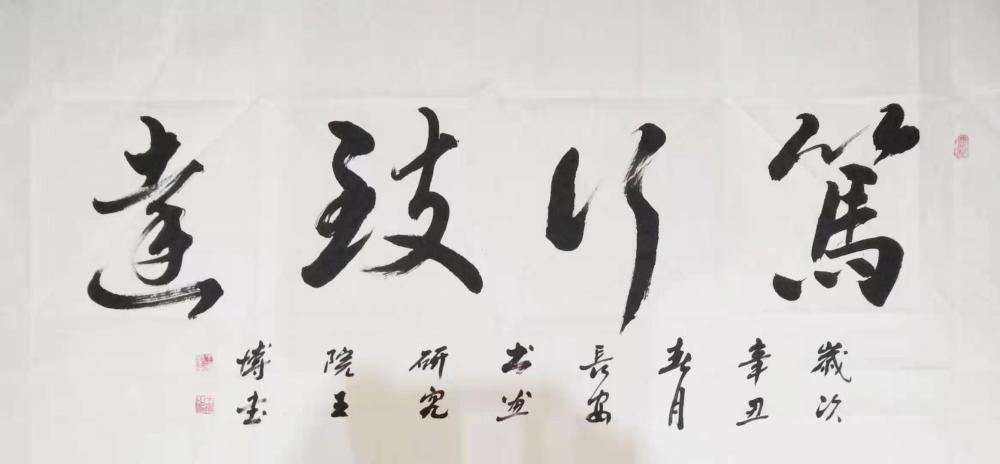 篤行致達
歲次
辛丑
春月
長安
書画
研究
院王
博書